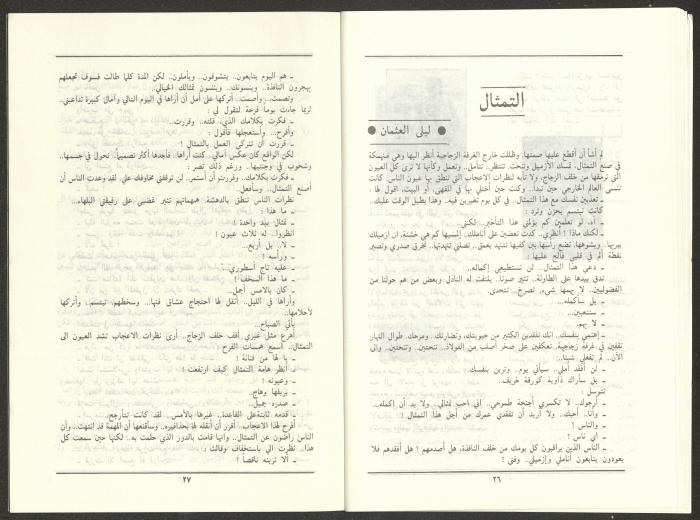 التمثال
● ليلى العثمان ●
لم أشأ أن أقطع عليها صمتها. وظللت خارج الغرفة الزجاجية أنظر اليها وهي منهمكة
في صنع التمثال. تمسك الأزميل وتنحت. تنتظر.. تتأمل.. وتعمل وكأنها لا ترى كل العيون
التي ترمقها من خلف الزجاج. ولا تأبه لنظرات الاعجاب التي تنطق بها عيون الناس. كانت
تنسى العالم الخارجي حين تبدأ.. وكنت حين أختلي بها في المقهى، أو البيت، اقول لها :
ـ تعذبين نفسك مع هذا التمثال.. في كل يوم تغيرين فيه.. وهذا يطيل الوقت عليك.
كانت تبتسم بحزن وترد :
ـ آه، لو تعلمين كم يؤلمني هذا التأخير.. لكنني..
ـ لكنك ماذا ؟ أنظري.. كدت تعضين على أناملك.. إلمسيها كم هي خشنة، ان ازميلك
يبريها.. ويشوهها. تضع رأسها بين كفيها تتنهد بعمق.. تصلني تنهيدتها.. تخرق صدري وتصير
نقطة ألم في قلبي فألح عليها :
ـ دعي هذا التمثال.. لن تستطيعي إكماله..
تدق بيدها على الطاولة.. تثير صوتا.. يلتفت له النادل وبعض من هم حولنا من
الفضوليين.. لا يهمها شيء. تصرخ.. تتحدى.
ـ بل سأكمله...
ـ ستتعبين..
ـ لا يهم.
ـ إهتمي بنفسك. انك تفقدين الكثير من حيويتك، ونضارتك.. ومرحك. طوال النهار
تقفين في غرفة زجاجية. تعكفين على صخر أصلب من الفولاذ.. تنحتين.. وتنحتين.. والى
الآن.. لم تفعلي شيئا..
ـ لن أفقد أملي.. سيأتي يوم.. وترين بنفسك.
ـ بل سأراك ذاوية كورقة خريف..
تتوسل
ـ أرجوك.. لا تكسري أجنحة طموحي. إني أحب تمثالي.. ولا بد أن إكمله..
ـ وأنا.. أحبك.. ولا أريد أن تفقدي عمرك من أجل هذا التمثال.
ـ والناس ؟
ـ أي ناس ؟
ـ الناس الذين يراقبون كل يومك من خلف النافذة، هل أصدمهم ؟ هل أفقدهم فلا
يعودون يتابعون أناملي وإزميلي.. وفني ؟
٢٦
ـ هم اليوم يتابعون.. يتشوقون.. ويأملون.. لكن المدة كلما طالت فسوف تجعلهم
يهجرون النافذة.. وينسونك.. وينسون تمثالك الخيالي..
وتصمت.. وأصمت.. أتركها على أمل أن أراها في اليوم التالي وآمال كبيرة تداعبني..
لربما جاءت يوماً فرحة لتقول لي :
ـ فكرت بكلامك الذي، قلته.. وقررت..
وأفرح.. وأستعجلها فأقول :
ـ قررت أن تتركي العمل بالتمثال !
لكن الواقع كان عكس أملي. كنت أراها.. فأجدها أكثر تصميماً.. نحولي في جسمها..
وشحوب في وجنتيها.. ورغم ذلك تصر :
ـ فكرت بكلامك. وقررت أن أستمر.. لن توقفني مخاوفك علي.. لقد وعدت الناس أن
أصنع التمثال.. وسأفعل.
نظرات الناس تنطق بالدهشة. همهماتهم تثير غضبي على رفيقتي البلهاء...
ـ ما هذا :
ـ تمثال بيد واحدة !
ـ انظروا.. له ثلاث عيون !
ـ لا.. بل أربع..
ـ ورأسه !
ـ عليه تاج أسطوري..
ـ ما هذا السخف !
ـ كان بالأمس أجمل..
وأراها في الليل.. أنقل لها احتجاج عشاق فنها... وسخطهم.. تبتسم.. وأتركها
لأحلامها..
يأتي الصباح..
أهرع مثل غيري أقف خلف الزجاج.. أرى نظرات الاعجاب تشد العيون الى
التمثال. أسمع همسات الفرح :
ـ يا لها من فنانة !
ـ أنظر هامة التمثال كيف ارتفعت !
ـ وعيونه !
ـ بريقها وهاج..
ـ صدره جميل..
ـ قدمه ثابتة على القاعدة.. غيرها بالأمس.. لقد كانت تتأرجح..
أفرح لهذا الاعجاب.. أقرر أن أنقله لها بحذافيره.. وسأقنعها أن المهمة قد انتهت.. وأن
الناس راضون عن التمثال.. وانها قامت بالدور الذي حلمت به.. لكنها حين سمعت كل
هذا.. نظرت الي باستخفاف وقالت :
ـ ألا ترينه ناقصاً !
٢٧